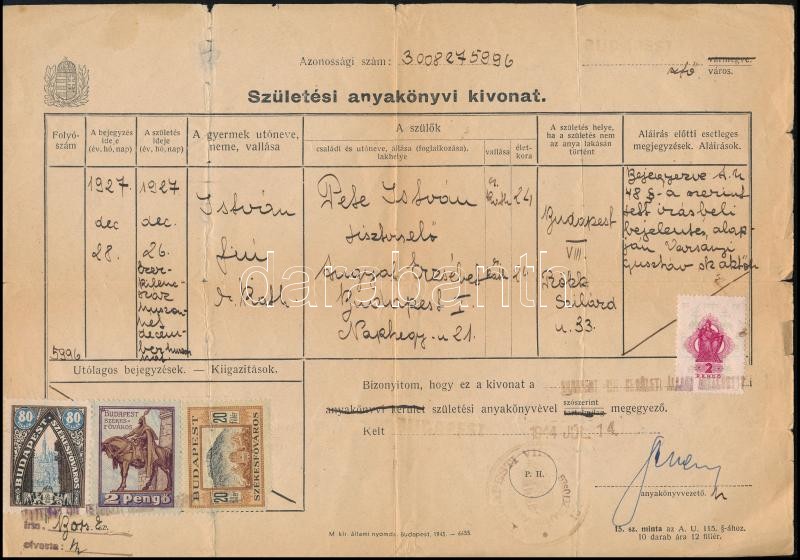 Azonossági szám: 3008275996
vármegye.
város.
Születési anyakönyvi kivonat.
Folyó-
szám
A bejegyzés
ideje
(év, hó, nap)
A születés
ideje
(év, hó, nap)
A gyermek utóneve,
neme, vallása
A szülők
családi és utóneve, állása (foglalkozása),
lakhelye
vallása
élet-
kora
A születés helye,
ha a születés nem
az anya lakásán
történt
Aláírás előtti esetleges
megjegyzések. Aláírások.
5996
1927
dec
28.
1927
dec.
26.
Ezer-
kilenc-
száz
huszon-
hét
decem-
ber huszon-
hat
István
fiú
r. Kath
Pete István
tisztviselő
Erzsébet
Budapest I.
Naphegy u 21.
24
Budapest
VIII.
Rökk
Szilárd
u. 33.
Bejegyezve A. U
48 §-a szerint
tett írásbeli
bejelentés alap-
ján Varsányi
Gusztáv sk
darabanth
Utólagos bejegyzések. — Kiigazítások.
Bizonyítom, hogy ez a kivonat a
anyakönyvi kerület születési anyakönyvével szószerint megegyező.
Kelt BUDAPEST 1944 JUL. 14.
P. H.
anyakönyvvezető.
2
PENGŐ
80 80
BUDAPEST
SZÉKESFŐVÁROS
BUDAPEST
SZÉKES-
FŐVÁROS
2 Pengő
20 fillér 20 fillér
BUDAPEST
SZÉKESFŐVÁROS
20 fillér 20 fillér
írta:
olvasta:
M. kir. állami nyomda, Budapest, 1943. — 6455.
15. sz. minta az A. U. 115. §-ához.
10 darab ára 12 fillér.